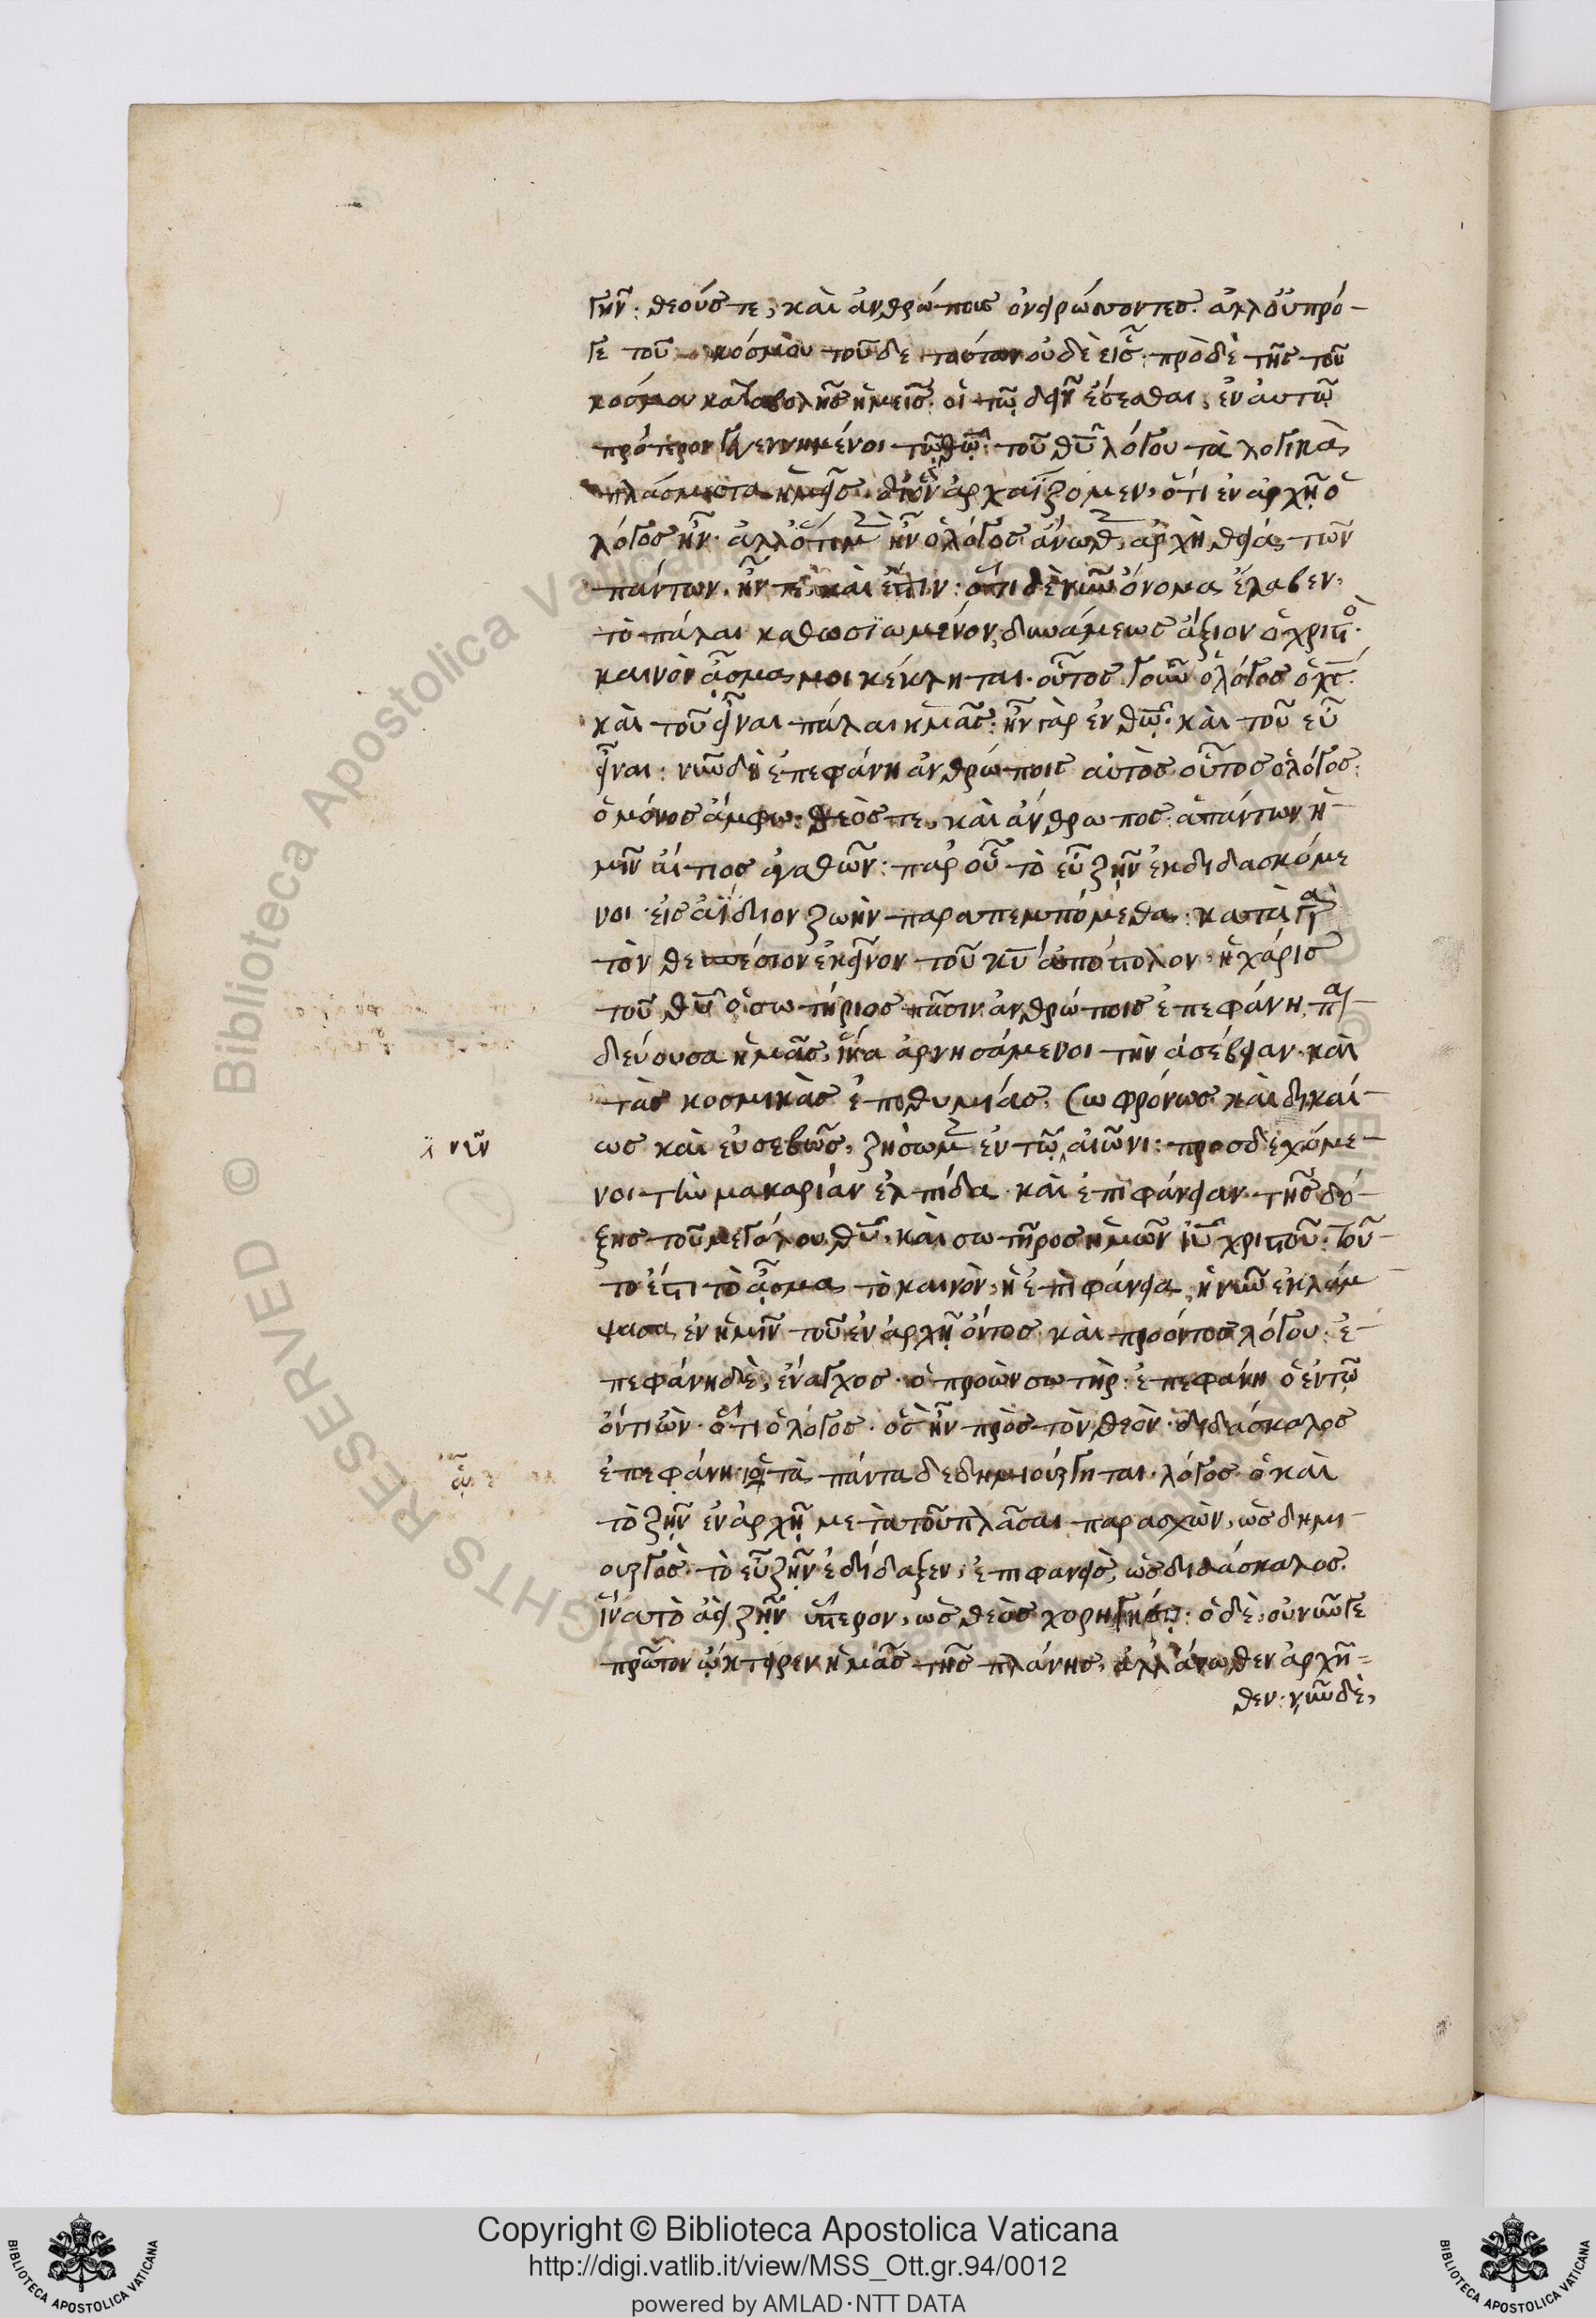 γῆν· θεούς τε, καὶ ἀνθρώπους ὀνειρώσσοντες. ἀλλ' οὐ πρό-
γε τοῦ κόσμου τοῦδε τούτων οὐδὲ εἷς· πρὸ δὲ τῆς τοῦ
κόσμου καταβολῆς ἡμεῖς· οἱ τῷ δεῖν ἔσεσθαι, ἐν αὐτῷ
πρότερον γεγεννημένοι τῷ θῶ· τοῦ θῦ λόγου τὰ λογικὰ
πλάσματα ἡμεῖς· δι' ὃν ἀρχαΐζομεν, ὅτι ἐν ἀρχῇ ὁ
λόγος ἦν· ἀλλ' ὅτι μὲν ἦν ὁ λόγος ἄνωθεν, ἀρχὴ θεία τῶν
πάντων, ἦν τε, καὶ ἔστιν· ὅτι δὲ νῦν ὄνομα ἔλαβεν,
τὸ πάλαι καθωσιωμένον, δυνάμεως ἄξιον ὁ χριστὸς·
καινὸν ᾆσμα μοι κέκληται· οὗτος γοῦν ὁ λόγος ὁ χς
καὶ τοῦ εἶναι πάλαι ἡμᾶς· ἦν γὰρ ἐν θῶ· καὶ τοῦ εὖ
εἶναι· νῦν δὴ ἐπεφάνη ἀνθρώποις αὐτὸς οὗτος ὁ λόγος·
ὁ μόνος ἄμφω· θεός τε, καὶ ἄνθρωπος· ἁπάντων ἡ-
μῖν αἴτιος ἀγαθῶν· παρ' οὗ τὸ εὖ ζῆν ἐκδιδασκόμε
νοι· εἰς ἀΐδιον ζωὴν παραπεμπόμεθα· κατὰ γὰρ
τὸν θεσπέσιον ἐκεῖνον τοῦ κῦ ἀπόστολον· ἡ χάρις
τοῦ θῦ ὁ σωτήριος πᾶσιν ἀνθρώποις ἐπεφάνη, παι-
δεύουσα ἡμᾶς, ἵνα ἀρνησάμενοι τὴν ἀσέβειαν· καὶ
τὰς κοσμικὰς ἐπιθυμίας, σωφρόνως καὶ δικαί-
ως καὶ εὐσεβῶς, ζήσωμεν ἐν τῷ αἰῶνι· προσδεχόμε-
νῦν
νοι τὴν μακαρίαν ἐλπίδα· καὶ ἐπιφάνειαν τῆς δό-
ξης τοῦ μεγάλου θῦ, καὶ σωτῆρος ἡμῶν ιῦ χριστοῦ· τοῦ-
τό ἐστι τὸ ᾆσμα τὸ καινὸν, ἡ ἐπιφάνεια, ἡ νῦν ἐκλάμ
ψασα ἐν ἡμῖν τοῦ ἐν ἀρχῇ ὄντος καὶ προόντος λόγου· ἐ-
πεφάνη δὲ, ἔναγχος· ὁ προὼν σωτὴρ· ἐπεφάνη ὁ ἐν τῷ
ὄντι ὢν· ὅτι ὁ λόγος· ὃς ἦν πρὸς τὸν θεὸν· διδάσκαλος
ἐπεφάνη· ᾧ τὰ πάντα δεδημιούργηται· λόγος· ὁ καὶ
τὸ ζῆν ἐν ἀρχῇ μετὰ τοῦ πλᾶσαι παρασχὼν, ὡς δημι-
ουργὸς· τὸ εὖ ζῆν ἐδίδαξεν, ἐπιφανεὶς, ὡς διδάσκαλος.
ἵνα τὸ ἀεὶ ζῆν ὕστερον, ὡς θεὸς χορηγήσῃ· ὁ δὲ, οὐ νῦν γε
πρῶτον ᾤκτειρεν ἡμᾶς τῆς πλάνης, ἀλλ' ἄνωθεν ἀρχῆ-
θεν· νῦν δὲ,
Copyright © Biblioteca Apostolica Vaticana
http://digi.vatlib.it/view/MSS_Ott.gr.94/0012
powered by AMLAD·NTT DATA
BIBLIOTECA APOSTOLICA VATICANA
BIBLIOTECA APOSTOLICA VATICANA